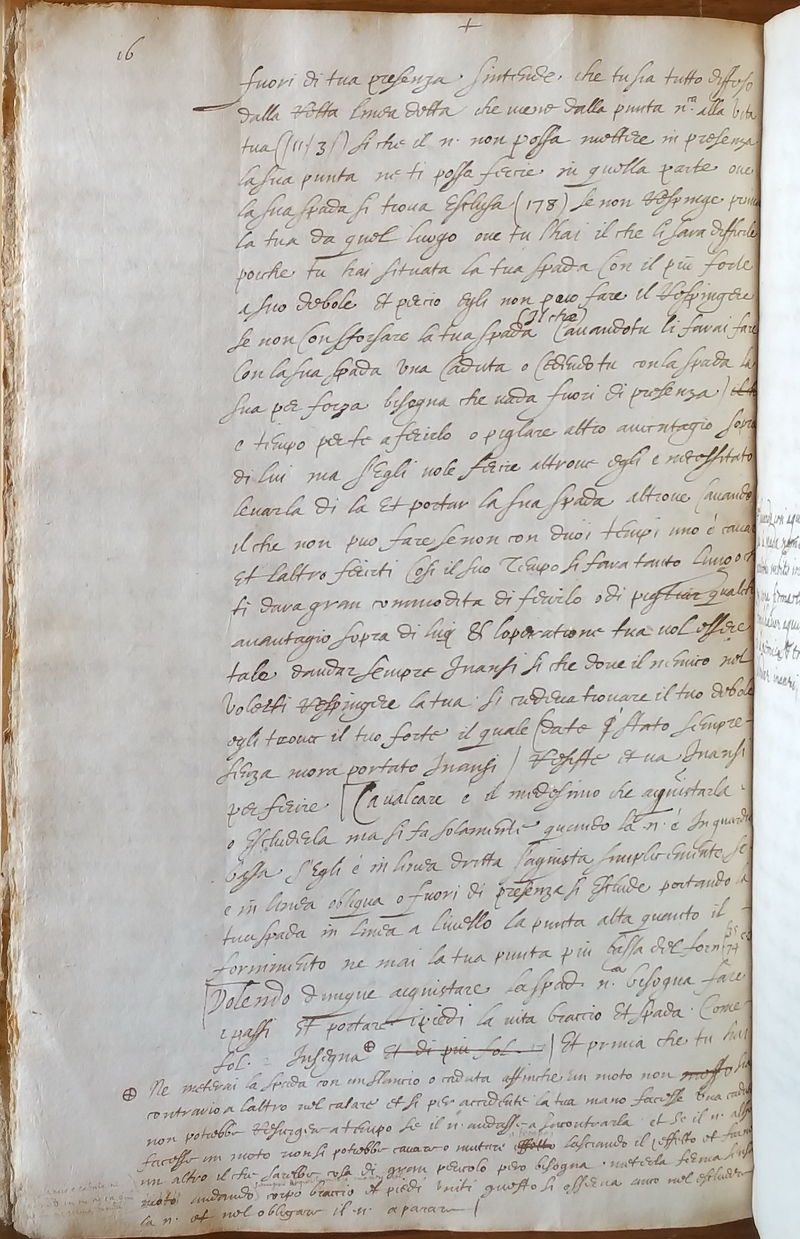 +
16
fuori di tua presenza s'intende che tu sia tutto diffeso
dalla retta linea detta che viene dalla punta n.ca alla vita
tua si che il n. non possa mettere in presenza
la sua punta ne ti possa ferire in quella parte oue
la sua spada si troua esclusa (178) se non respinge prima
la tua da quel luogo oue tu l'hai il che li sara difficile
poiche tu hai situata la tua spada con il più forte
a suo debole et perciò egli non può fare il respingere
se non con sforzare la tua spada cauandotu li farai fare
con la sua spada una caduta o cedendo tu con la spada la
sua per forza bisogna che uada fuori di presenza
e tempo per te a ferirlo o pigliare altro auantagio sopra
di lui ma s'egli uole ferire altroue egli e necessitato
leuarla di la et portar la sua spada altroue cauando
il che non puo fare se non con duoi tempi uno è cauar
et l'altro ferirti cosi il suo tempo si fara tanto lungo ch
ti dara gran commodita di ferirlo o di pigliar qualch
auantagio sopra di lui et l'operatione tua uol essere
tale d'andar sempre inansi si che doue il nemico nel
volerti respingere la tua si credeua trouare il tuo debole
egli troua il tuo forte il quale (da te è stato sempre
senza mora portato inansi) resiste et ua inansi
per ferire [Caualcare e il medesimo che aquistarla
o escluderla ma si fa solamente quando la n. è in guardia
bassa s'egli è in linea dritta s'aquista simplicemente se
e in linea obliqua o fuori di presenza si esclude portando la
tua spada in linea a liuello la punta alta quanto il
fornimento ne mai la tua punta più bassa del forni
Volendo dunque acquistare la spad. n.ca bisogna fare
i passi et portare i piedi la uita braccio et spada come
fol. : insegna ⊕ et di più fol. et prima che tu hai
⊕ Ne meterai la spada con un slancio o caduta affinche un moto non sia
contrario a l'altro nel calare et si per accidente la tua mano facesse una caduta
non potrebbe resurger a tempo se il n. andasse a incontrarla et se il n.
facesse un moto non si potrebbe cauare o mutare effetto lasciando il effetto et farne
un altro il che sarebbe cosa di gran pericolo però bisogna meterla ferma senza
moto andando corpo braccio et piedi uniti questo si osserua anco nel escluder
la n. et nel obligare il n. a parare